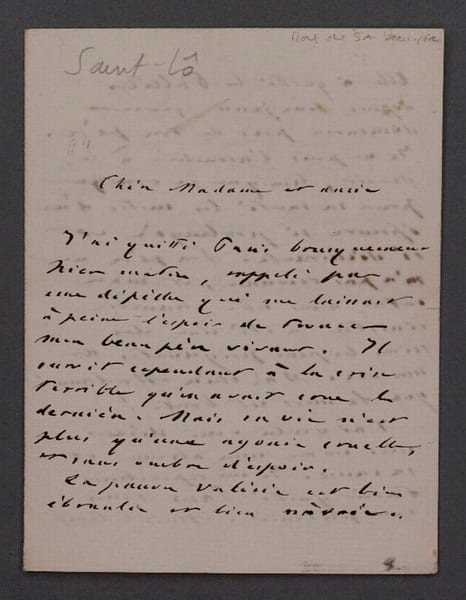 Mort de son beau-père
Saint-Lô
Chère Madame et amie
J'ai quitté Paris brusquement
hier matin, rappelé par
une dépêche qui me laissait
à peine l'espoir de trouver
mon beau père vivant. Il
survit cependant à la crise
terrible qu'on avait crue la
dernière. Mais sa vie n'est
plus qu'une agonie cruelle,
et sans ombre d'espoir.
La pauvre Valérie est bien
ébranlée et bien navrée.